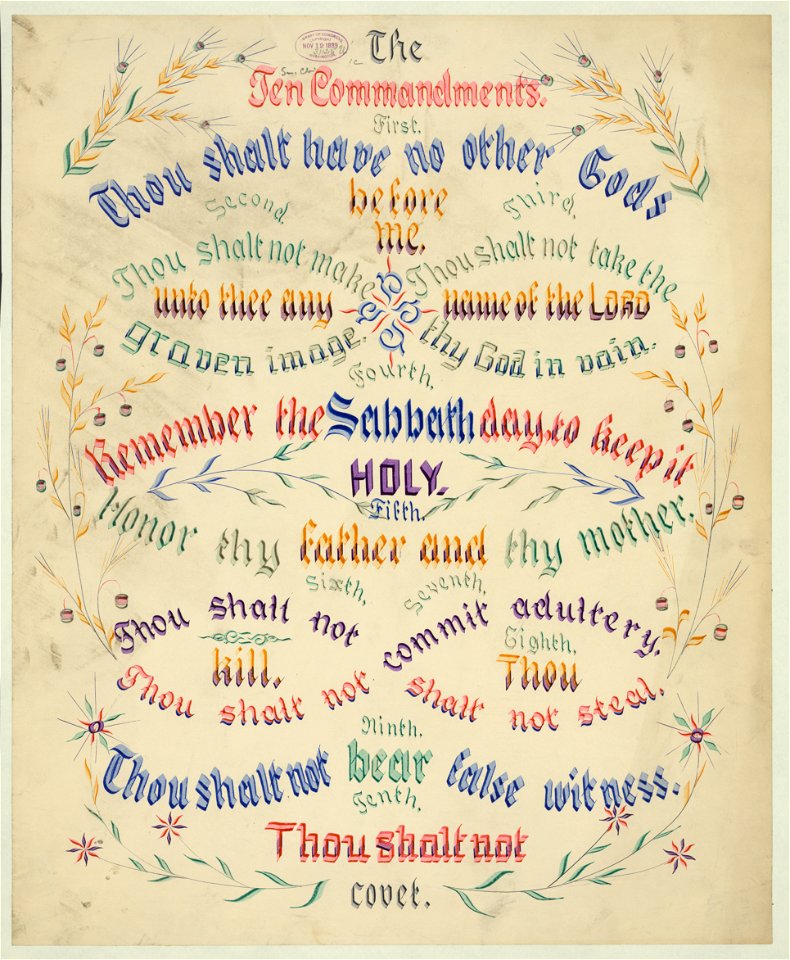 LIBRARY OF CONGRESS
COPYRIGHT
NOV 19 1889
WASHINGTON
The
Ten Commandments.
First.
Thou shalt have no other Gods
before
me.
Second.
Thou shalt not make
unto thee any
graven image.
Third.
Thou shalt not take the
name of the LORD
thy God in vain.
Fourth.
Remember the Sabbath day, to keep it
HOLY.
Fifth.
Honor thy father and thy mother.
Sixth,
Thou shalt not
kill.
Seventh,
Thou shalt not commit adultery.
Eighth,
Thou
shalt not steal.
Ninth,
Thou shalt not bear false witness.
Tenth,
Thou shalt not
covet.